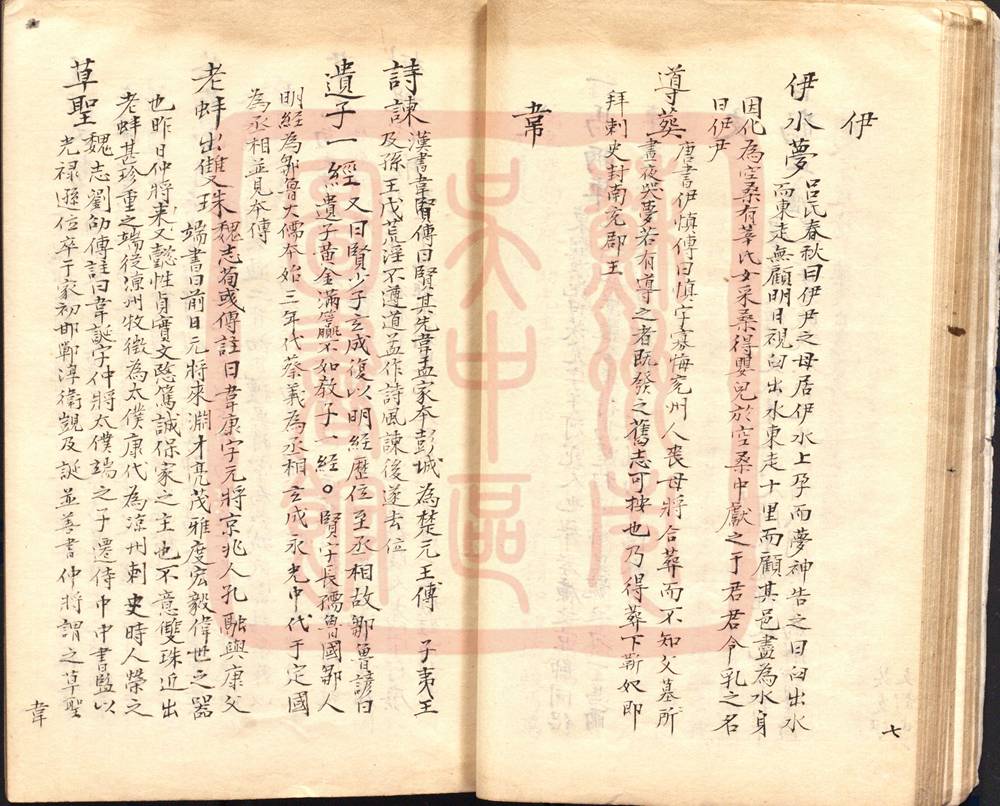 伊
伊水夢呂氏春秋曰伊尹之母居伊水上孕而夢神告之曰臼出水
而東走無顧明日視臼出水東走十里而顧其邑盡為水身
因化為空桑有莘氏女采桑得嬰兒於空桑中獻之于君君令乳之名
曰伊尹
導葬唐書伊慎傳曰慎字寡悔兗州人喪母將合葬而不知父墓所
晝夜哭夢若有導之者既發之舊志可按也乃得葬下蘄奴即
拜刺史封南充郡王
韋
七
詩諫漢書韋賢傳曰賢其先韋孟家本彭城為楚元王傳 子夷王
及孫王戊荒淫不遵道孟作詩風諫後遂去位
遺子一經又曰賢少子玄成復以明經歷位至丞相故鄒魯諺曰
遺子黃金滿籯不如教子一經。賢字長孺魯國鄒人
明經為鄒魯大儒本始三年代蔡義為丞相玄成永光中代于定國
為丞相並見本傳
老蚌出雙珠魏志荀彧傳註曰韋康字元將京兆人孔融與康父
端書曰前日元將來淵才亮茂雅度宏毅偉世之器
也昨日仲將来又懿性貞實文愍篤誠保家之主也不意雙珠近出
老蚌甚珍重之端從涼州牧徵為太僕康代為涼州刺史時人榮之
草聖魏志劉劭傳註曰韋誕字仲將太僕端之子遷侍中中書監以
光禄遜位卒于家初邯鄲淳衛覬及誕並善書仲將謂之草聖
韋